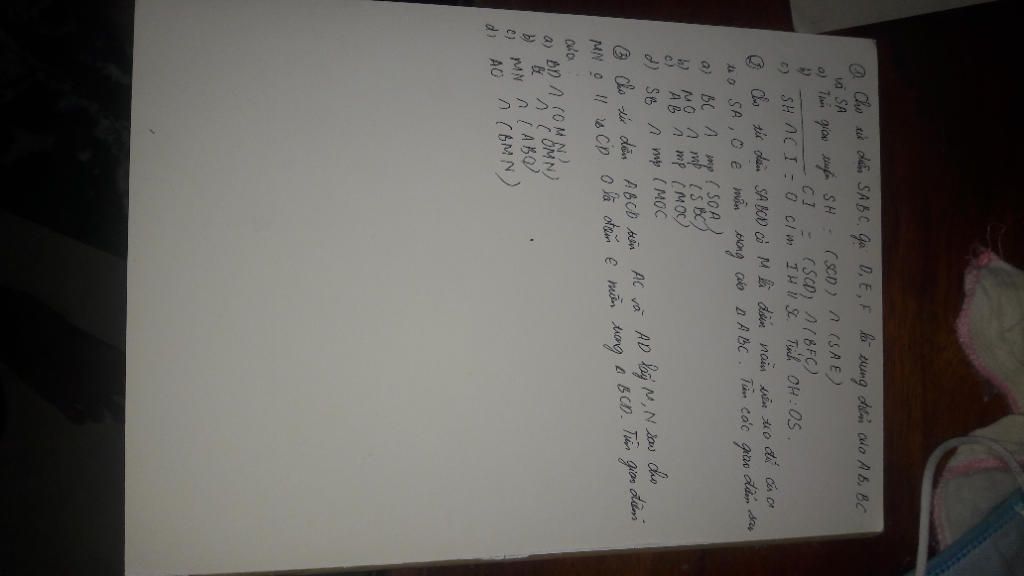 ① Cho tứ diện SABC gọi D, E, F là trung điểm của AB, BC
và SA
a) Tìm giao tuyến SH = (SCD) ∩ (SAE)
b) ——— CI = (SCD) ∩ (BFC)
c) SH ∩ CI = O C/m IH // SC. Tính OH : OS.
② Cho tứ diện SABCD có M là điểm nằm trên
SA, O ∈ miền trong của Δ ABC. Tìm các giao điểm sau
a) BC ∩ mp (SOA)
b) MO ∩ mp (SBC)
c) AB ∩ mp (MOC)
d) SB ∩ mp (MOC
③ Cho tứ diện ABCD trên AC và AD lấy M, N sao cho
MN // CD O là điểm ∈ miền trong Δ BCD. Tìm giao điểm
của :
a) BD ∩ (OMN)
b) BC ∩ (OMN)
c) MN ∩ (ABO)
d) AO ∩ (BMN)